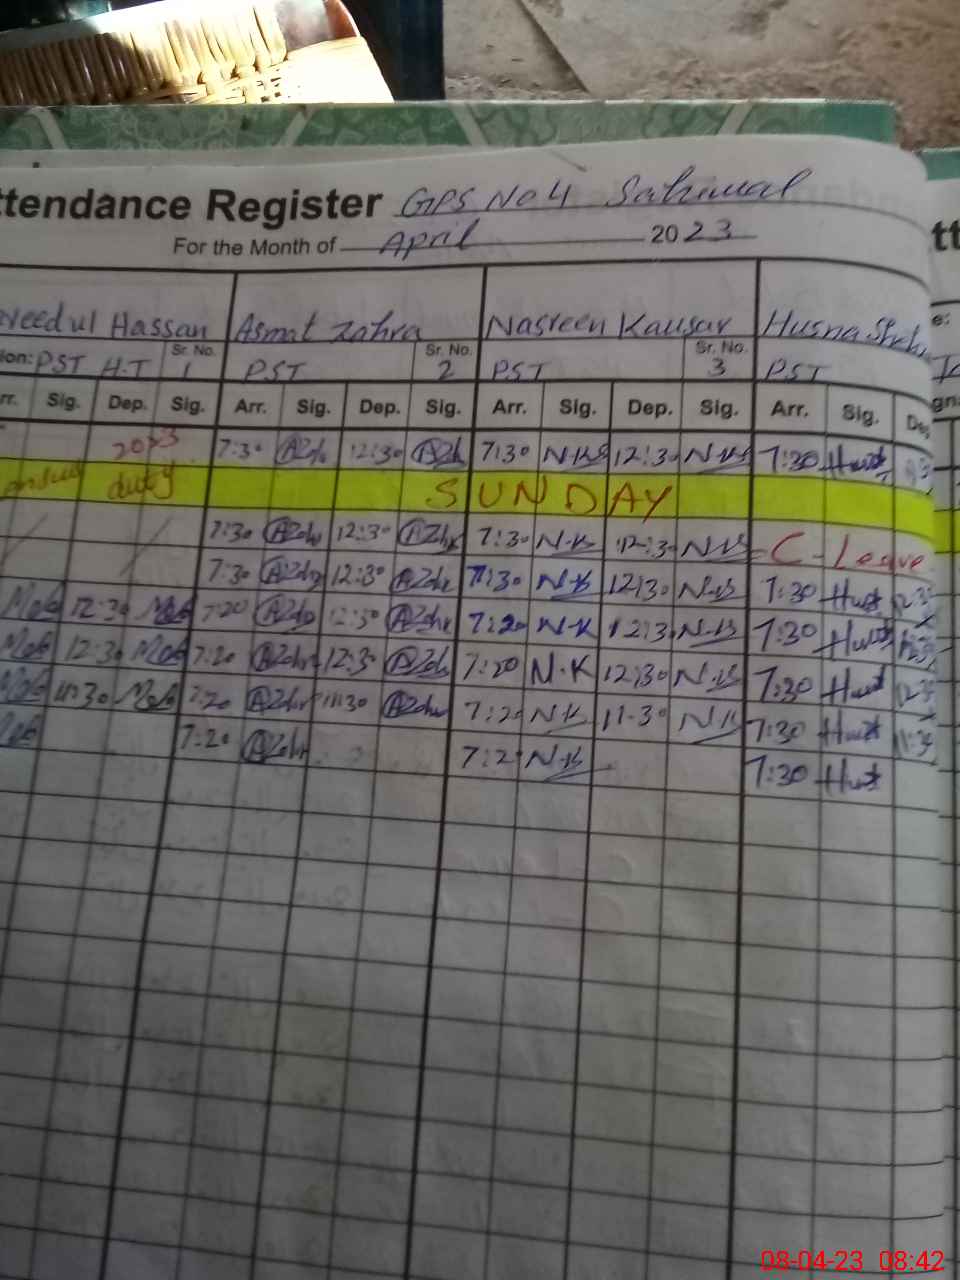 ttendance Register GPS No 4 Sahiwal
For the Month of April 2023
veed ul Hassan Asmat Zahra Nasreen Kausar Husna Sheh
ion: PST H.T Sr. No. 1 PST Sr. No. 2 PST Sr. No. 3 PST
rr. Sig. Dep. Sig. Arr. Sig. Dep. Sig. Arr. Sig. Dep. Sig. Arr. Sig. De
2023 7:30 AZh 12:30 AZh 7:30 N-KS 12:30 N-KS 7:30 Husn
duty SUNDAY
7:30 AZahr 12:30 AZahr 7:30 N-K 12:30 N-K C-Leave
7:30 AZahr 12:30 AZahr 7:30 N-K 12:30 N-K 7:30 Husn 12:3
12:30 7:20 AZahr 12:30 AZahr 7:20 N-K 12:30 N-K 7:30 Husn 12:3
12:30 7:20 AZahr 12:30 AZahr 7:20 N.K 12:30 N-K 7:30 Husn 12:3
11:30 7:20 AZahr 11:30 AZahr 7:20 N-K 11:30 N-K 7:30 Husn 11:3
7:20 AZahr 7:2 N-K 7:30 Husn
08-04-23 08:42